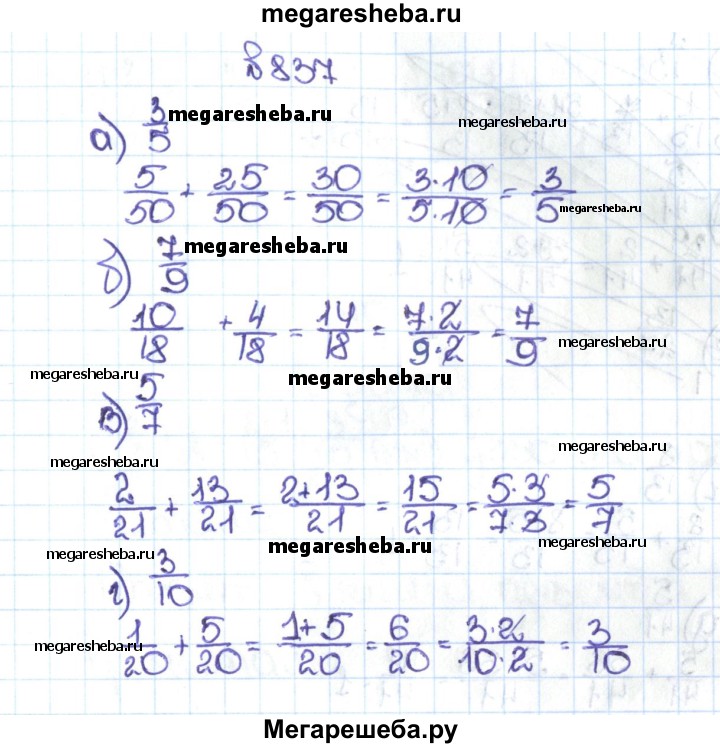 megaresheba.ru
№ 837
а) 3/5 megaresheba.ru megaresheba.ru
5/50 + 25/50 = 30/50 = 3·10/5·10 = 3/5 megaresheba.ru
б) 7/9 megaresheba.ru
10/18 + 4/18 = 14/18 = 7·2/9·2 = 7/9 megaresheba.ru
megaresheba.ru megaresheba.ru
в) 5/7 megaresheba.ru
megaresheba.ru
2/21 + 13/21 = 2+13/21 = 15/21 = 5·3/7·3 = 5/7
megaresheba.ru megaresheba.ru megaresheba.ru
г) 3/10
megaresheba.ru 1/20 + 5/20 = 1+5/20 = 6/20 = 3·2/10·2 = 3/10
Мегарешеба.ру